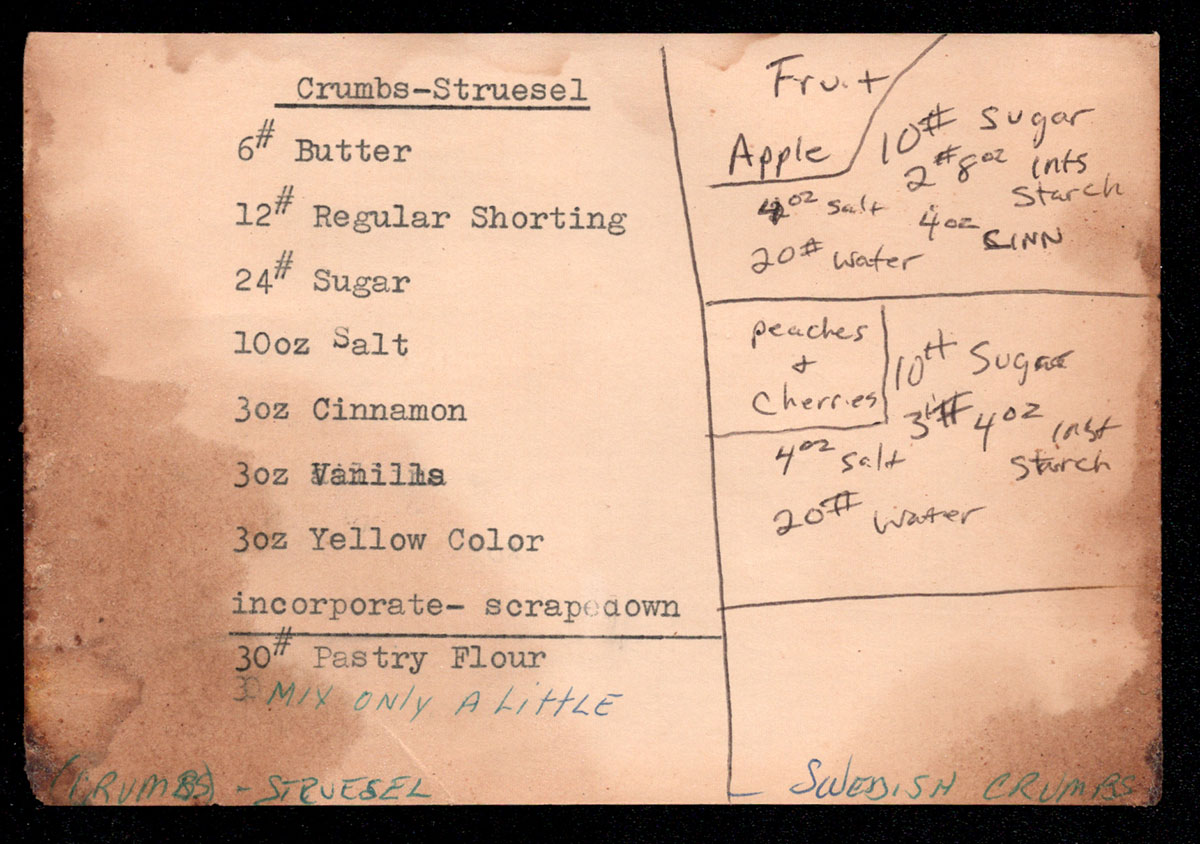 Crumbs-Struesel
6# Butter
12# Regular Shorting
24# Sugar
10oz Salt
3oz Cinnamon
3oz Vanilla
3oz Yellow Color
incorporate- scrapedown
30# Pastry Flour
MIX ONLY A LITTLE
(CRUMBS) - STRUESEL
Fruit
Apple
10# Sugar
2# 8oz ints
Starch
4oz salt
4oz CINN
20# water
peaches
+
Cherries
10# Sugar
3# 4oz inst
Starch
4oz salt
20# water
SWEDISH CRUMBS